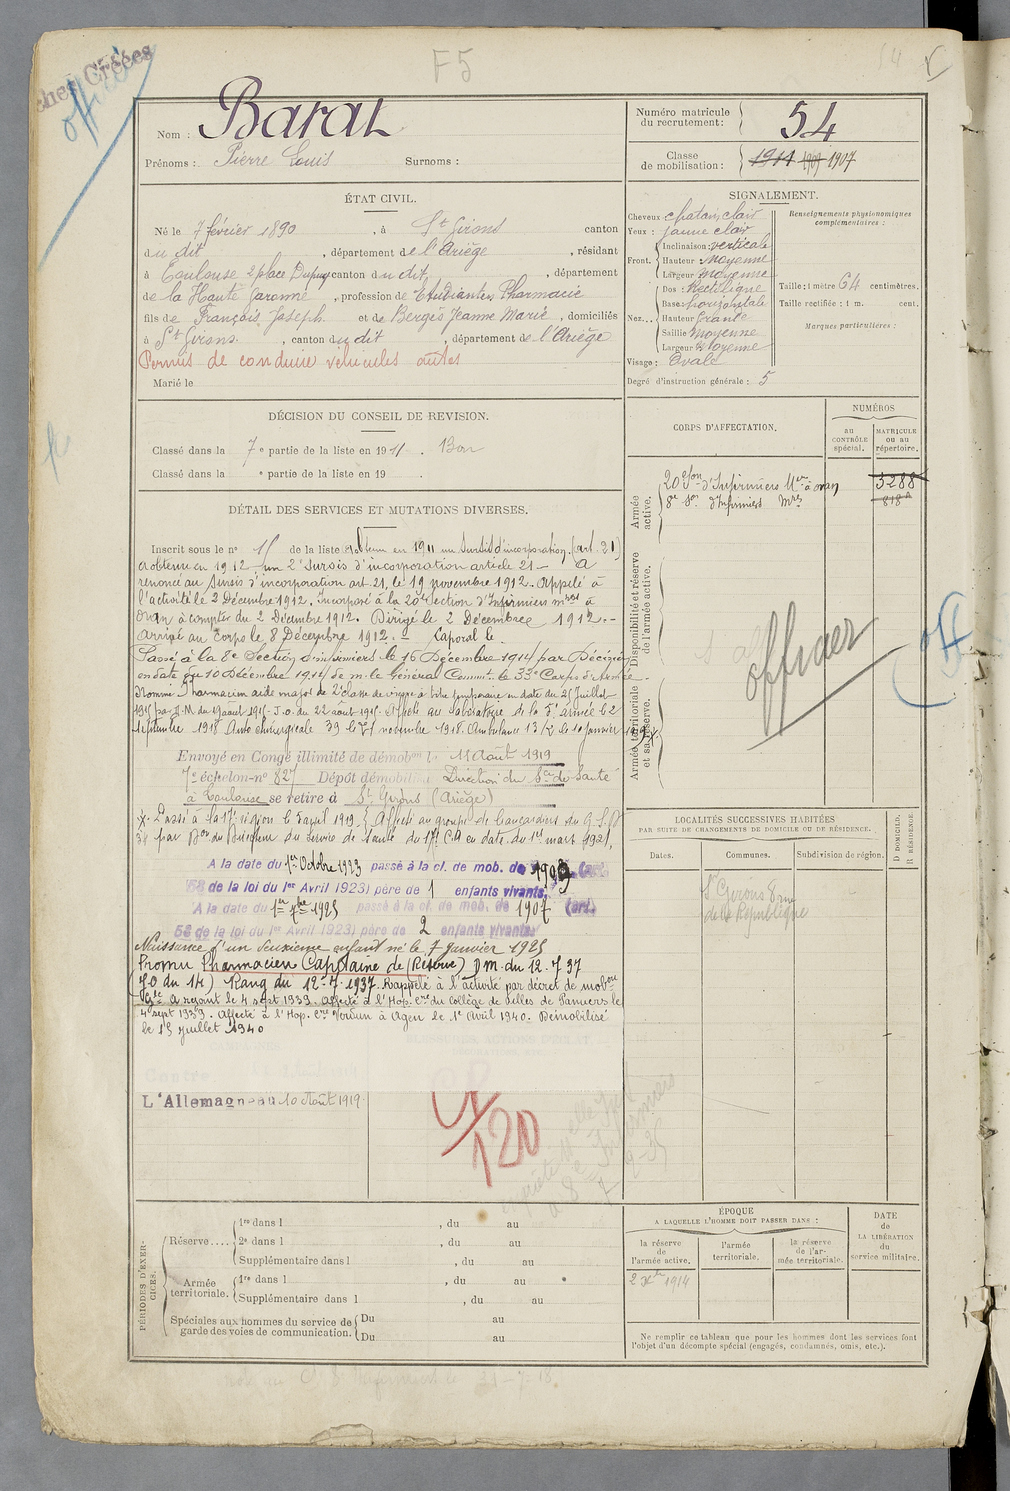 F5
14
Fiches Créées
officier
Nom : Barat
Prénoms : Pierre Louis Surnoms :
Numéro matricule du recrutement : 54
Classe de mobilisation : 1911 1909 1907
ÉTAT CIVIL.
Né le 7 février 1890, à St Girons canton
du dit, département de l'Ariège, résidant
à Toulouse 2 place Dupuy canton du dit, département
de la Haute Garonne, profession de Etudiant en Pharmacie
fils de François Joseph et de Bergès Jeanne Marie, domiciliés
à St Girons, canton du dit, département de l'Ariège
Permis de conduire véhicules autos
Marié le
SIGNALEMENT.
Cheveux chatain clair
Yeux : jaune clair
Front. Inclinaison : verticale
Hauteur Moyenne
Largeur Moyenne
Nez... Dos : Rectiligne
Base : horizontale
Hauteur Grande
Saillie Moyenne
Largeur Moyenne
Visage : Ovale
Degré d'instruction générale : 5
Renseignements physionomiques complémentaires :
Taille : 1 mètre 64 centimètres.
Taille rectifiée : 1 m. cent.
Marques particulières :
DÉCISION DU CONSEIL DE REVISION.
Classé dans la 7e partie de la liste en 1911. Bon
Classé dans la e partie de la liste en 19 .
CORPS D'AFFECTATION.
NUMÉROS
au CONTRÔLE spécial.
MATRICULE ou au répertoire.
Armée active.
20e Son d'Infirmiers Mres à Oran 3288
8e Son d'Infirmiers Mres 818
Disponibilité et réserve de l'armée active.
Armée territoriale et sa réserve.
officier
off
DÉTAIL DES SERVICES ET MUTATIONS DIVERSES.
Inscrit sous le no 15 de la liste. Obtenu en 1911 un sursis d'incorporation. (art. 21)
A obtenu en 1912 un 2e sursis d'incorporation article 21 - A
renoncé au sursis d'incorporation art 21, le 19 novembre 1912. Appelé à
l'activité le 2 Décembre 1912. Incorporé à la 20e Section d'Infirmiers mres à
Oran à compter du 2 Décembre 1912. Dirigé le 2 Décembre 1912.-
Arrivé au Corps le 8 Décembre 1912. - Caporal le
Passé à la 8e Section d'infirmiers le 16 Décembre 1914 par Décision
en date du 10 Décembre 1914 de m. le Général Commt le 33e Corps d'Armée -
Nommé Pharmacien aide major de 2e classe de réserve à titre temporaire en date du 25 Juillet
1915 par D.M. du 19 août 1915 - J.O. du 22 août 1915. Affecté au laboratoire de la 5e armée le 2
Septembre 1918 Auto chirurgicale 39 le 21 novembre 1918. Ambulance 13/2 le 10 Janvier 1919
Envoyé en Congé illimité de démobon le 11 Août 1919
7e échelon - no 827 Dépôt démobilisateur Direction du Sce de Santé
à Toulouse se retire à St Girons (Ariège)
Passé à la 17e région le 5 avril 1919. Affecté au groupe de brancardiers du G.S.D
34 par Don du Directeur du service de santé du 17e C.A en date du 1er mars 1921.
A la date du 1er Octobre 1923 passé à la cl. de mob. de 1909 (art.
58 de la loi du 1er Avril 1923) père de 1 enfants vivants.
A la date du 1er 7bre 1925 passé à la cl. de mob. de 1907 (art.
58 de la loi du 1er Avril 1923) père de 2 enfants vivants.
Naissance d'un deuxième enfant né le 7 janvier 1925
Promu Pharmacien Capitaine de (Réserve) DM. du 12.7.37
(JO du 14) Rang du 12.7.1937. Rappelé à l'activité par décret de mobon
Gle A rejoint le 4 sept 1939. Affecté à l'Hop. Cre du collège de filles de Pamiers le
4 sept 1939. Affecté à l'Hop. Cre Verdun à Agen le 1er Avril 1940. Démobilisé
le 15 Juillet 1940
Contre
L'Allemagne au 10 Août 1919
120
LOCALITÉS SUCCESSIVES HABITÉES
PAR SUITE DE CHANGEMENTS DE DOMICILE OU DE RÉSIDENCE.
Dates.
Communes.
Subdivision de région.
D DOMICILE. R RÉSIDENCE.
St Girons 8 rue
de la République
PÉRIODES D'EXERCICES.
Réserve.... 1re dans l , du au
2e dans l , du au
Supplémentaire dans l , du au
Armée territoriale. 1re dans l , du au
Supplémentaire dans l , du au
Spéciales aux hommes du service de garde des voies de communication. Du au
Du au
ÉPOQUE
A LAQUELLE L'HOMME DOIT PASSER DANS :
la réserve de l'armée active.
l'armée territoriale.
la réserve de l'armée territoriale.
DATE de LA LIBÉRATION du service militaire.
2 Xbre 1914
Ne remplir ce tableau que pour les hommes dont les services font
l'objet d'un décompte spécial (engagés, condamnés, omis, etc.).